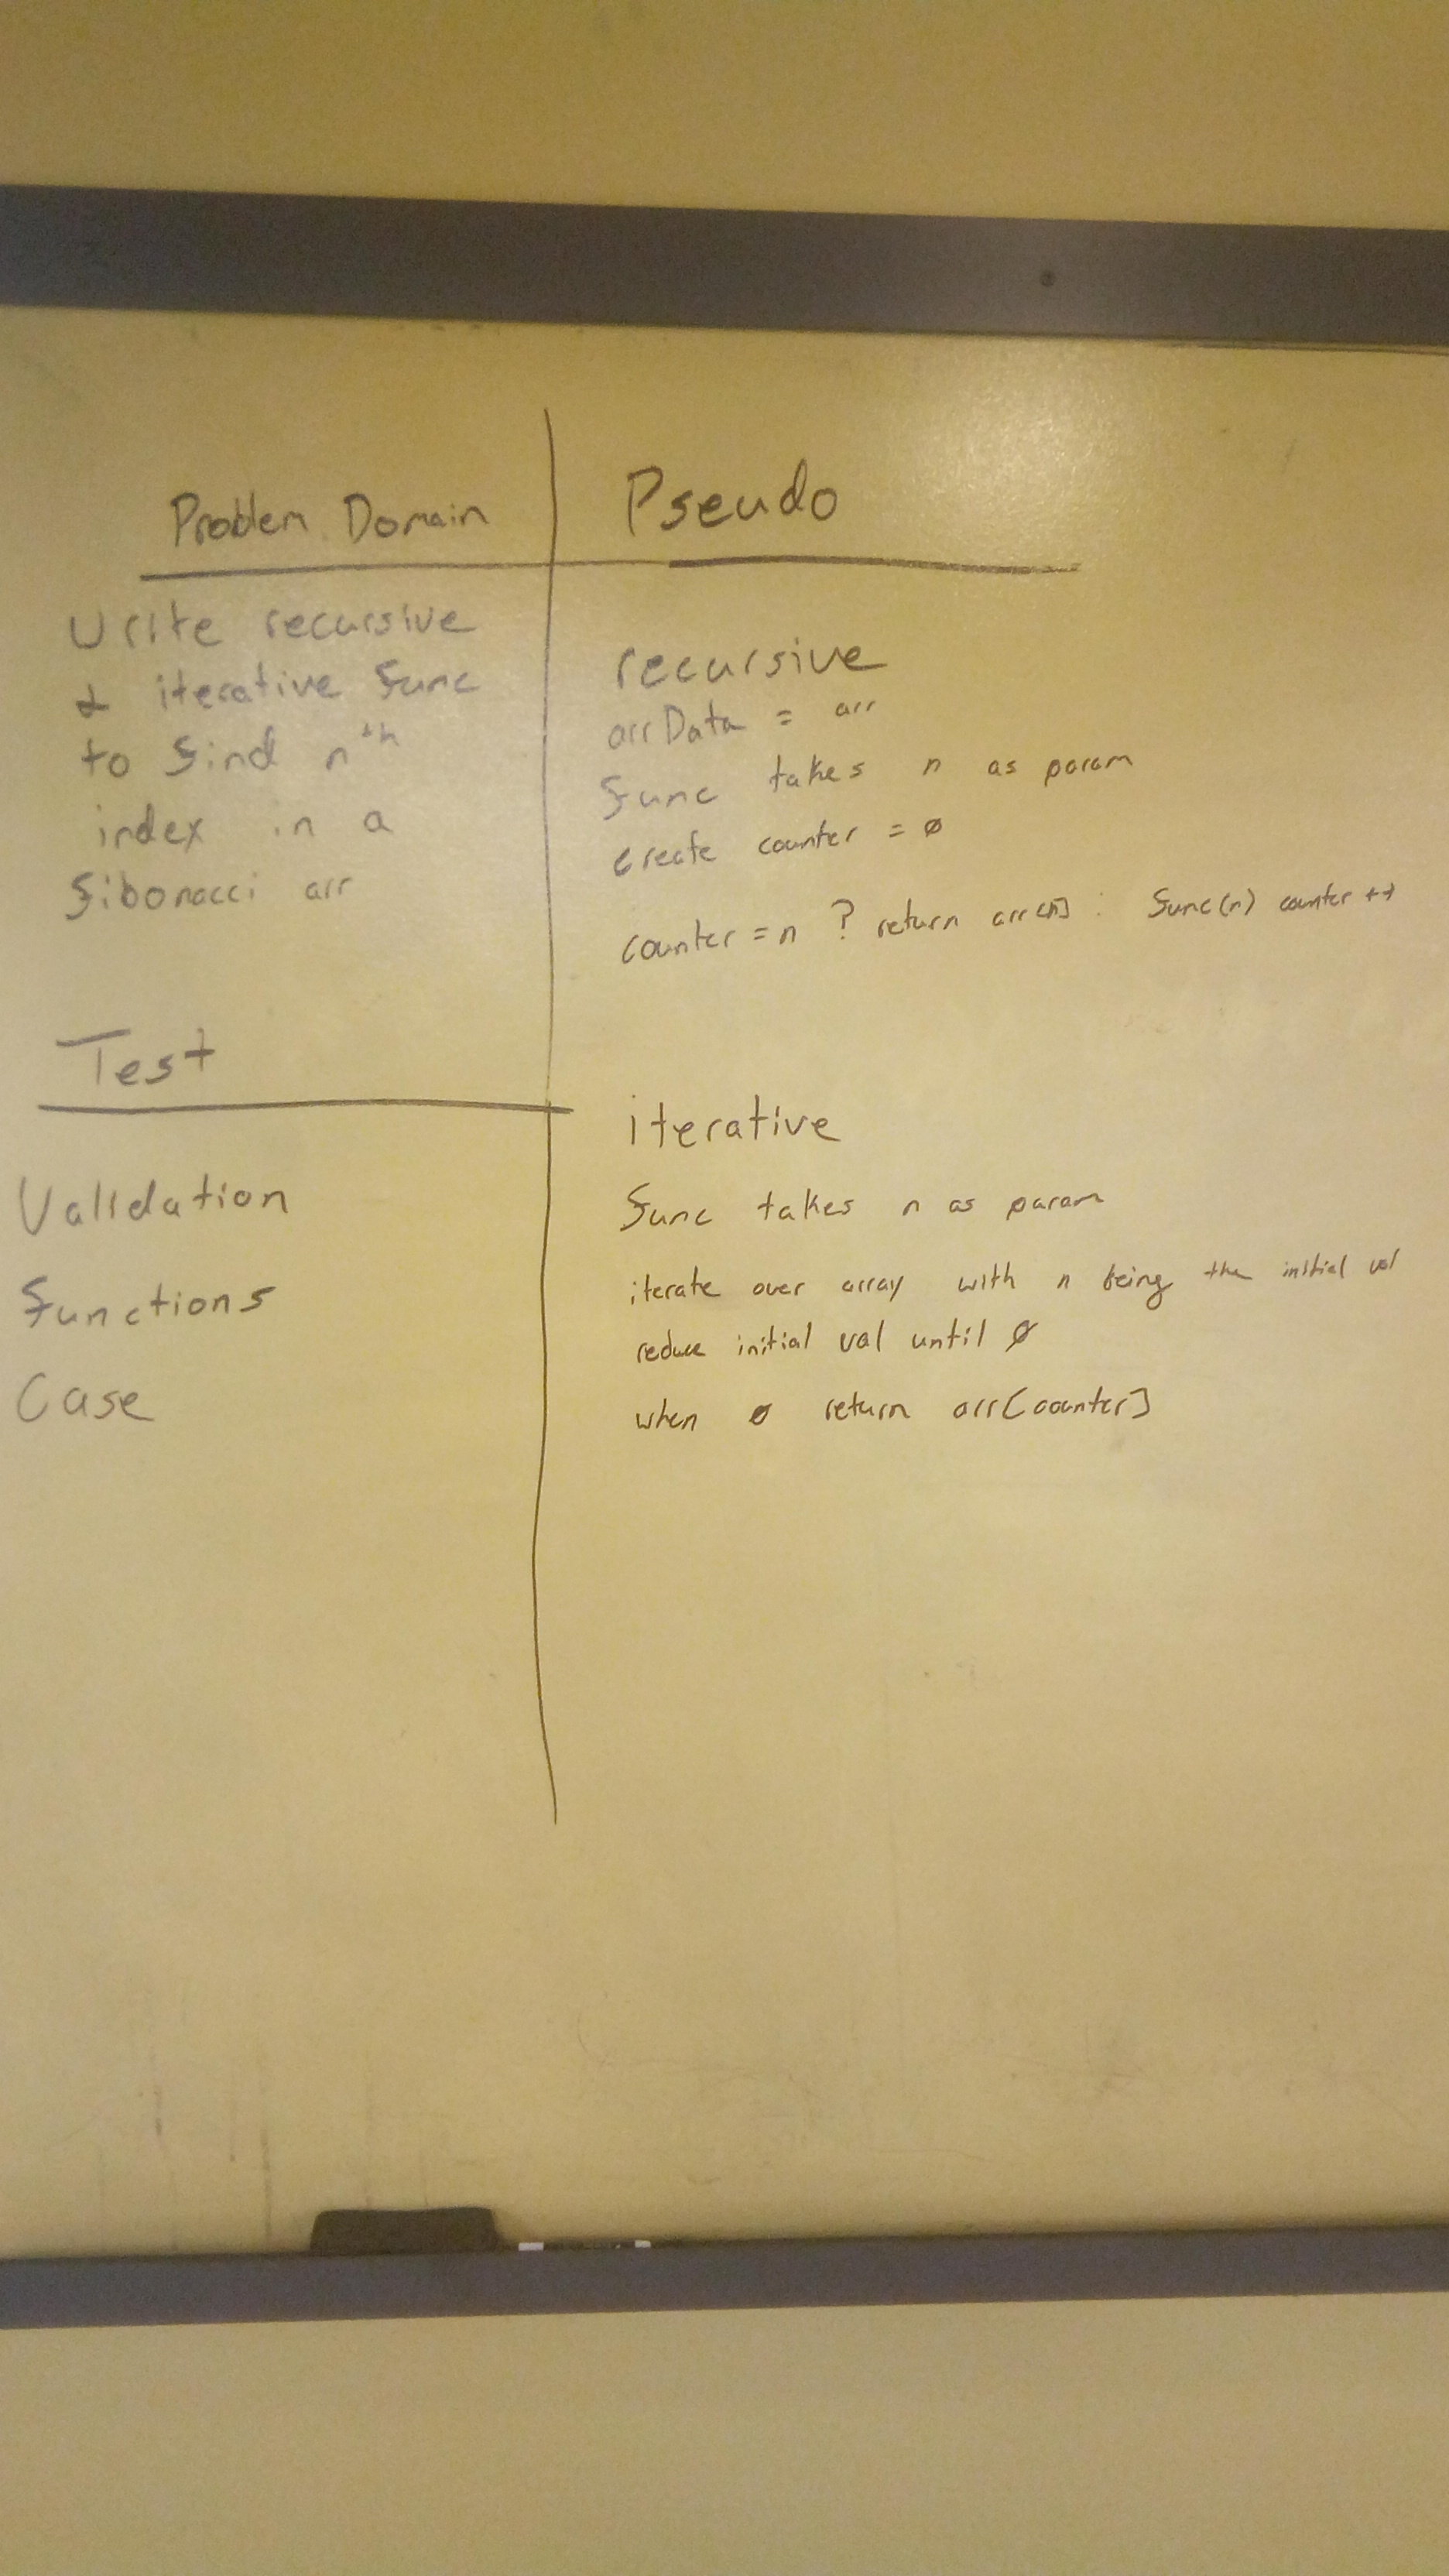 Problem Domain
Write recursive
& iterative func
to find nth
index in a
fibonacci arr
Test
Validation
functions
Case
Pseudo
recursive
arrData = arr
func takes n as param
create counter = 0
counter = n ? return arr[n] : func(n) counter ++
iterative
func takes n as param
iterate over array with n being the initial val
reduce initial val until 0
when 0 return arr[counter]